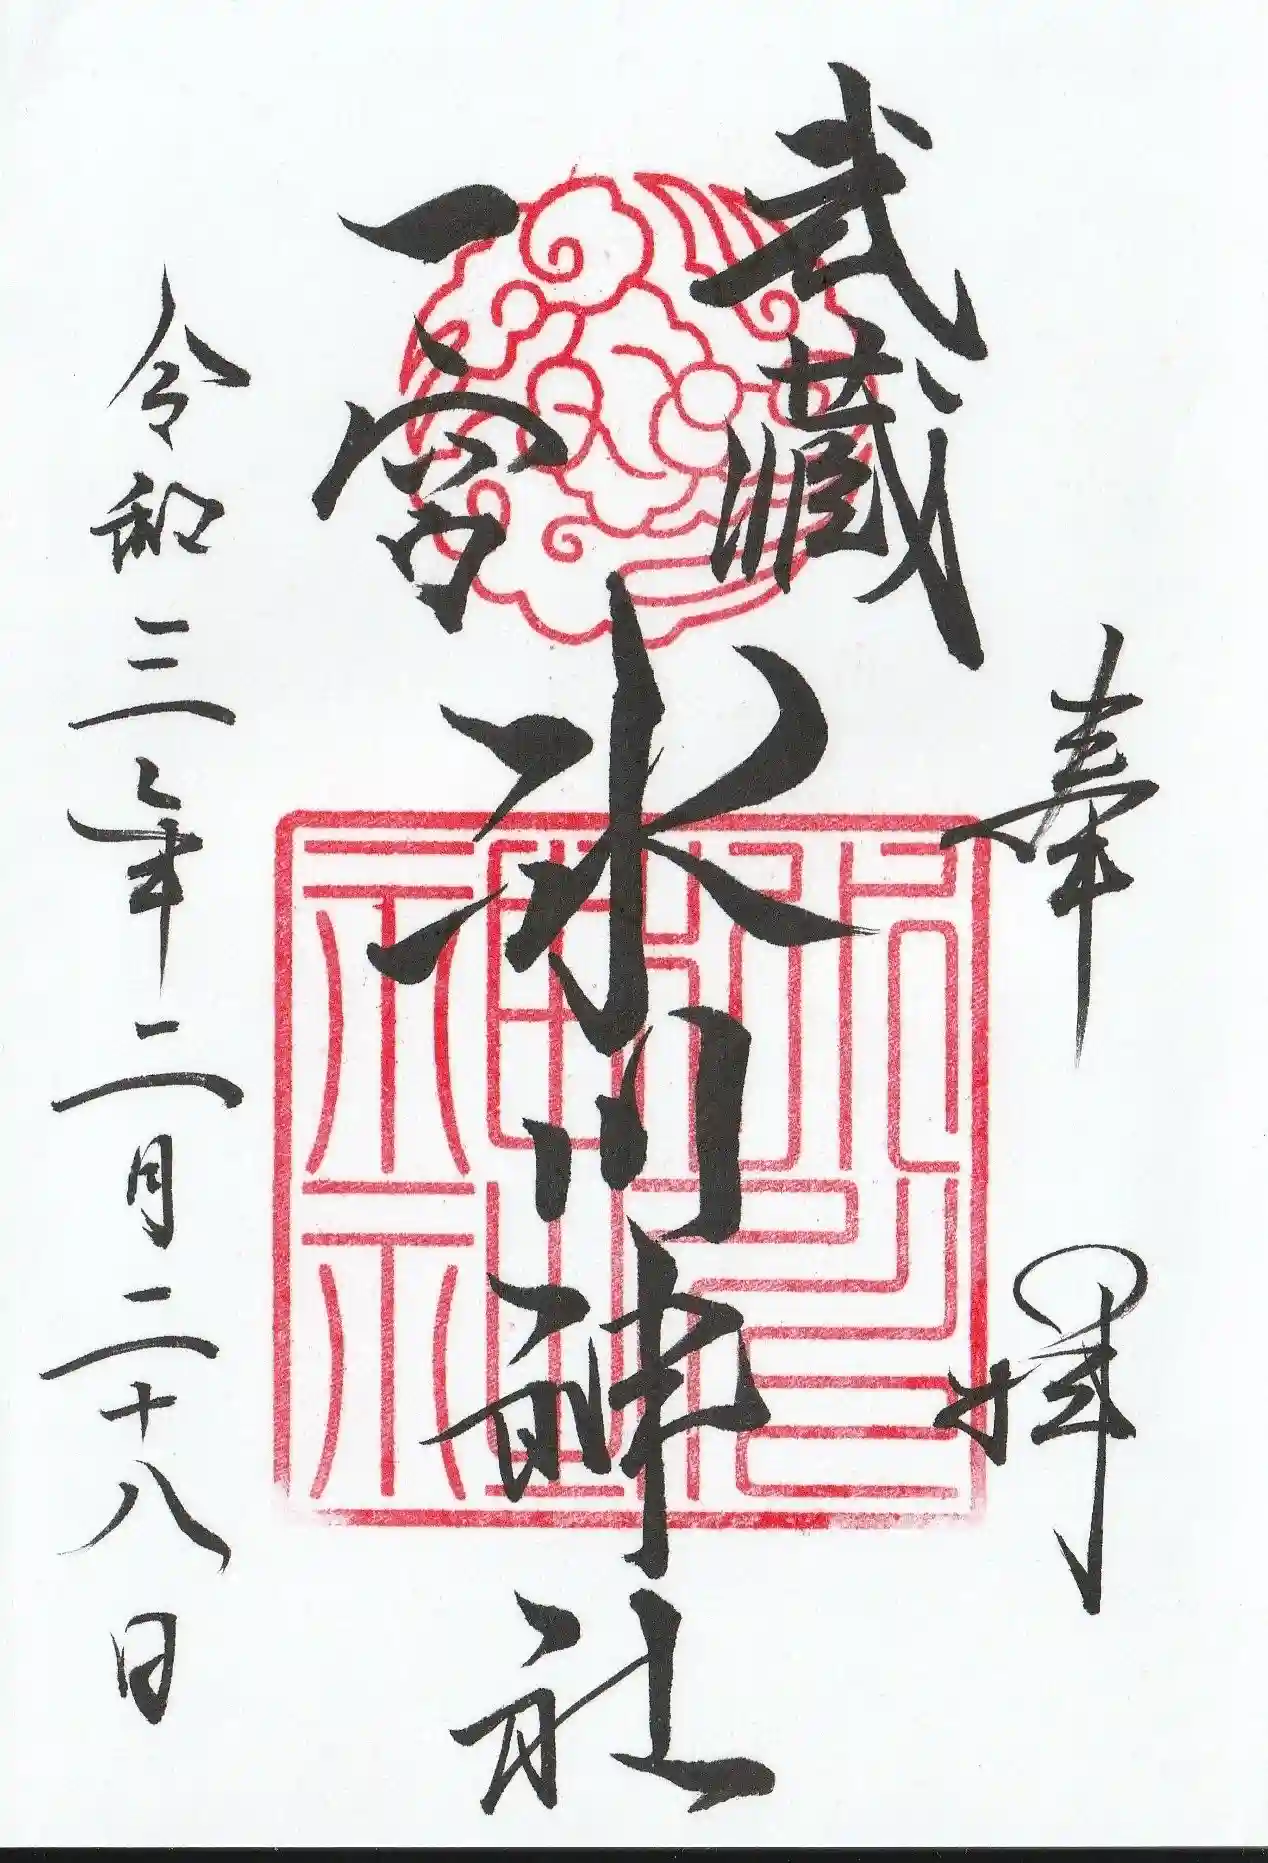 奉拝
武蔵
一宮
氷川神社
令和三年二月二十八日
氷川神社